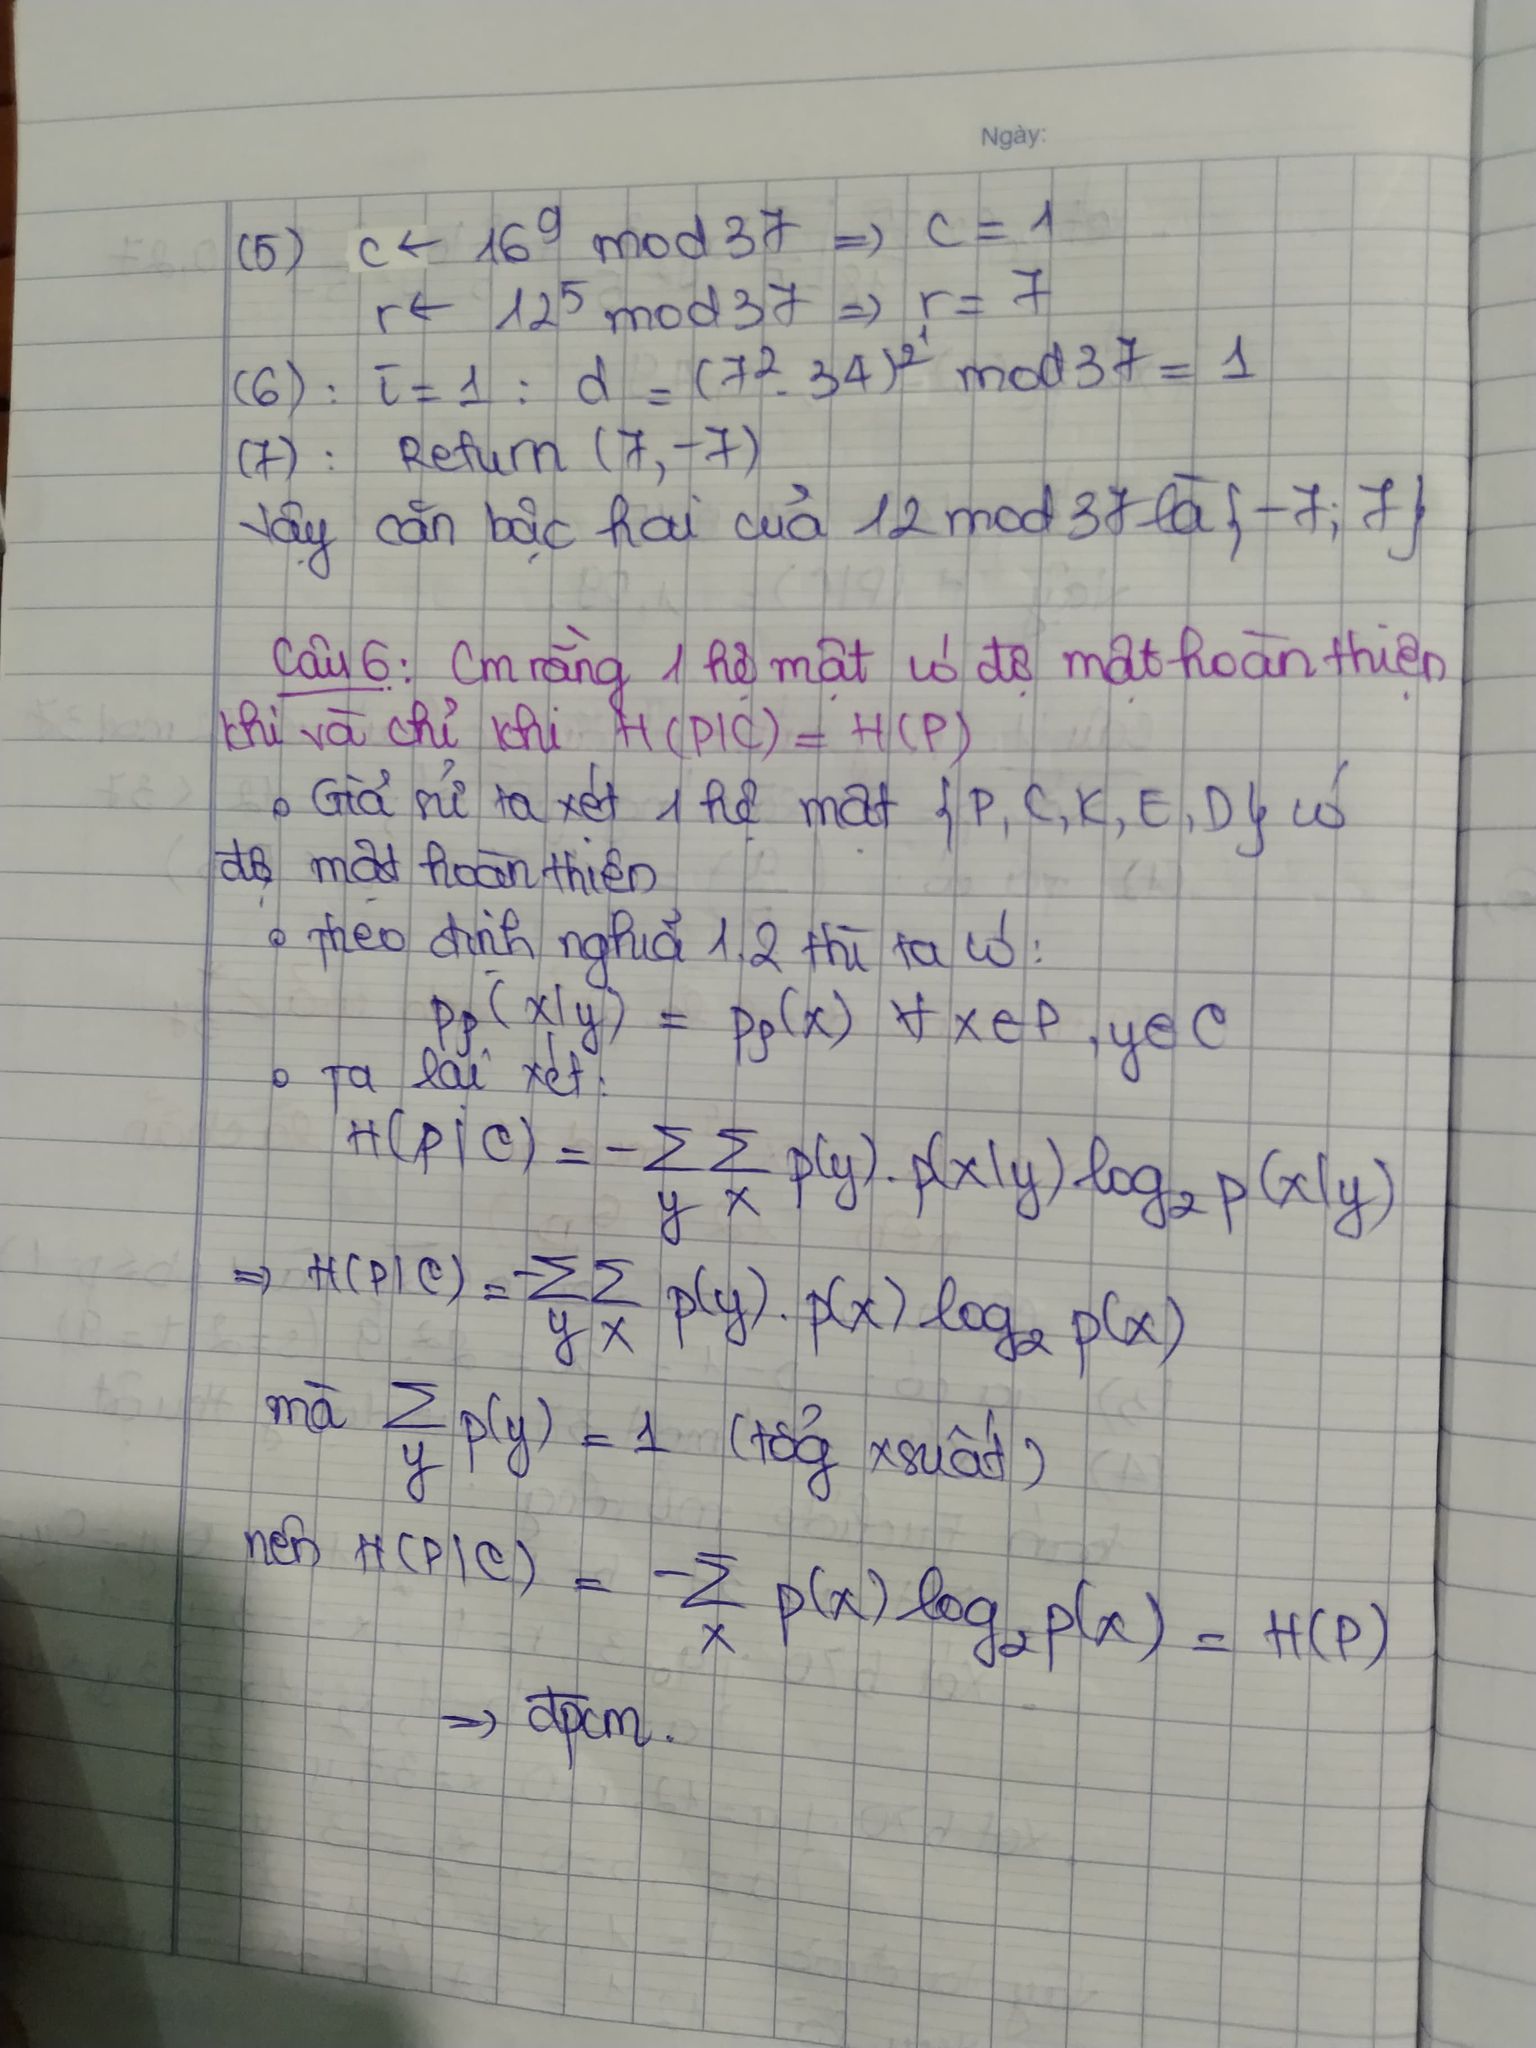 Ngày:
(5) c ← 16⁹ mod 37 => c = 1
r ← 12⁵ mod 37 => r = 7
(6): i = 1 : d = (7². 34)^2¹ mod 37 = 1
(7): Return (7, -7)
Vậy căn bậc hai của 12 mod 37 là {-7; 7}
Câu 6: Cm rằng 1 hệ mật có độ mật hoàn thiện
khi và chỉ khi H(P|C) = H(P)
o Giả sử ta xét 1 hệ mật {P, C, K, E, D} có
độ mật hoàn thiện
o Theo định nghĩa 1.2 thì ta có:
Pp(x|y) = Pp(x) ∀ x∈P, y∈C
o Ta lại xét:
H(P|C) = -∑y ∑x p(y). p(x|y) log₂ p(x|y)
=> H(P|C) = -∑y ∑x p(y). p(x) log₂ p(x)
mà ∑y p(y) = 1 (tổg xsuất)
nên H(P|C) = -∑x p(x) log₂ p(x) = H(P)
=> đpcm.